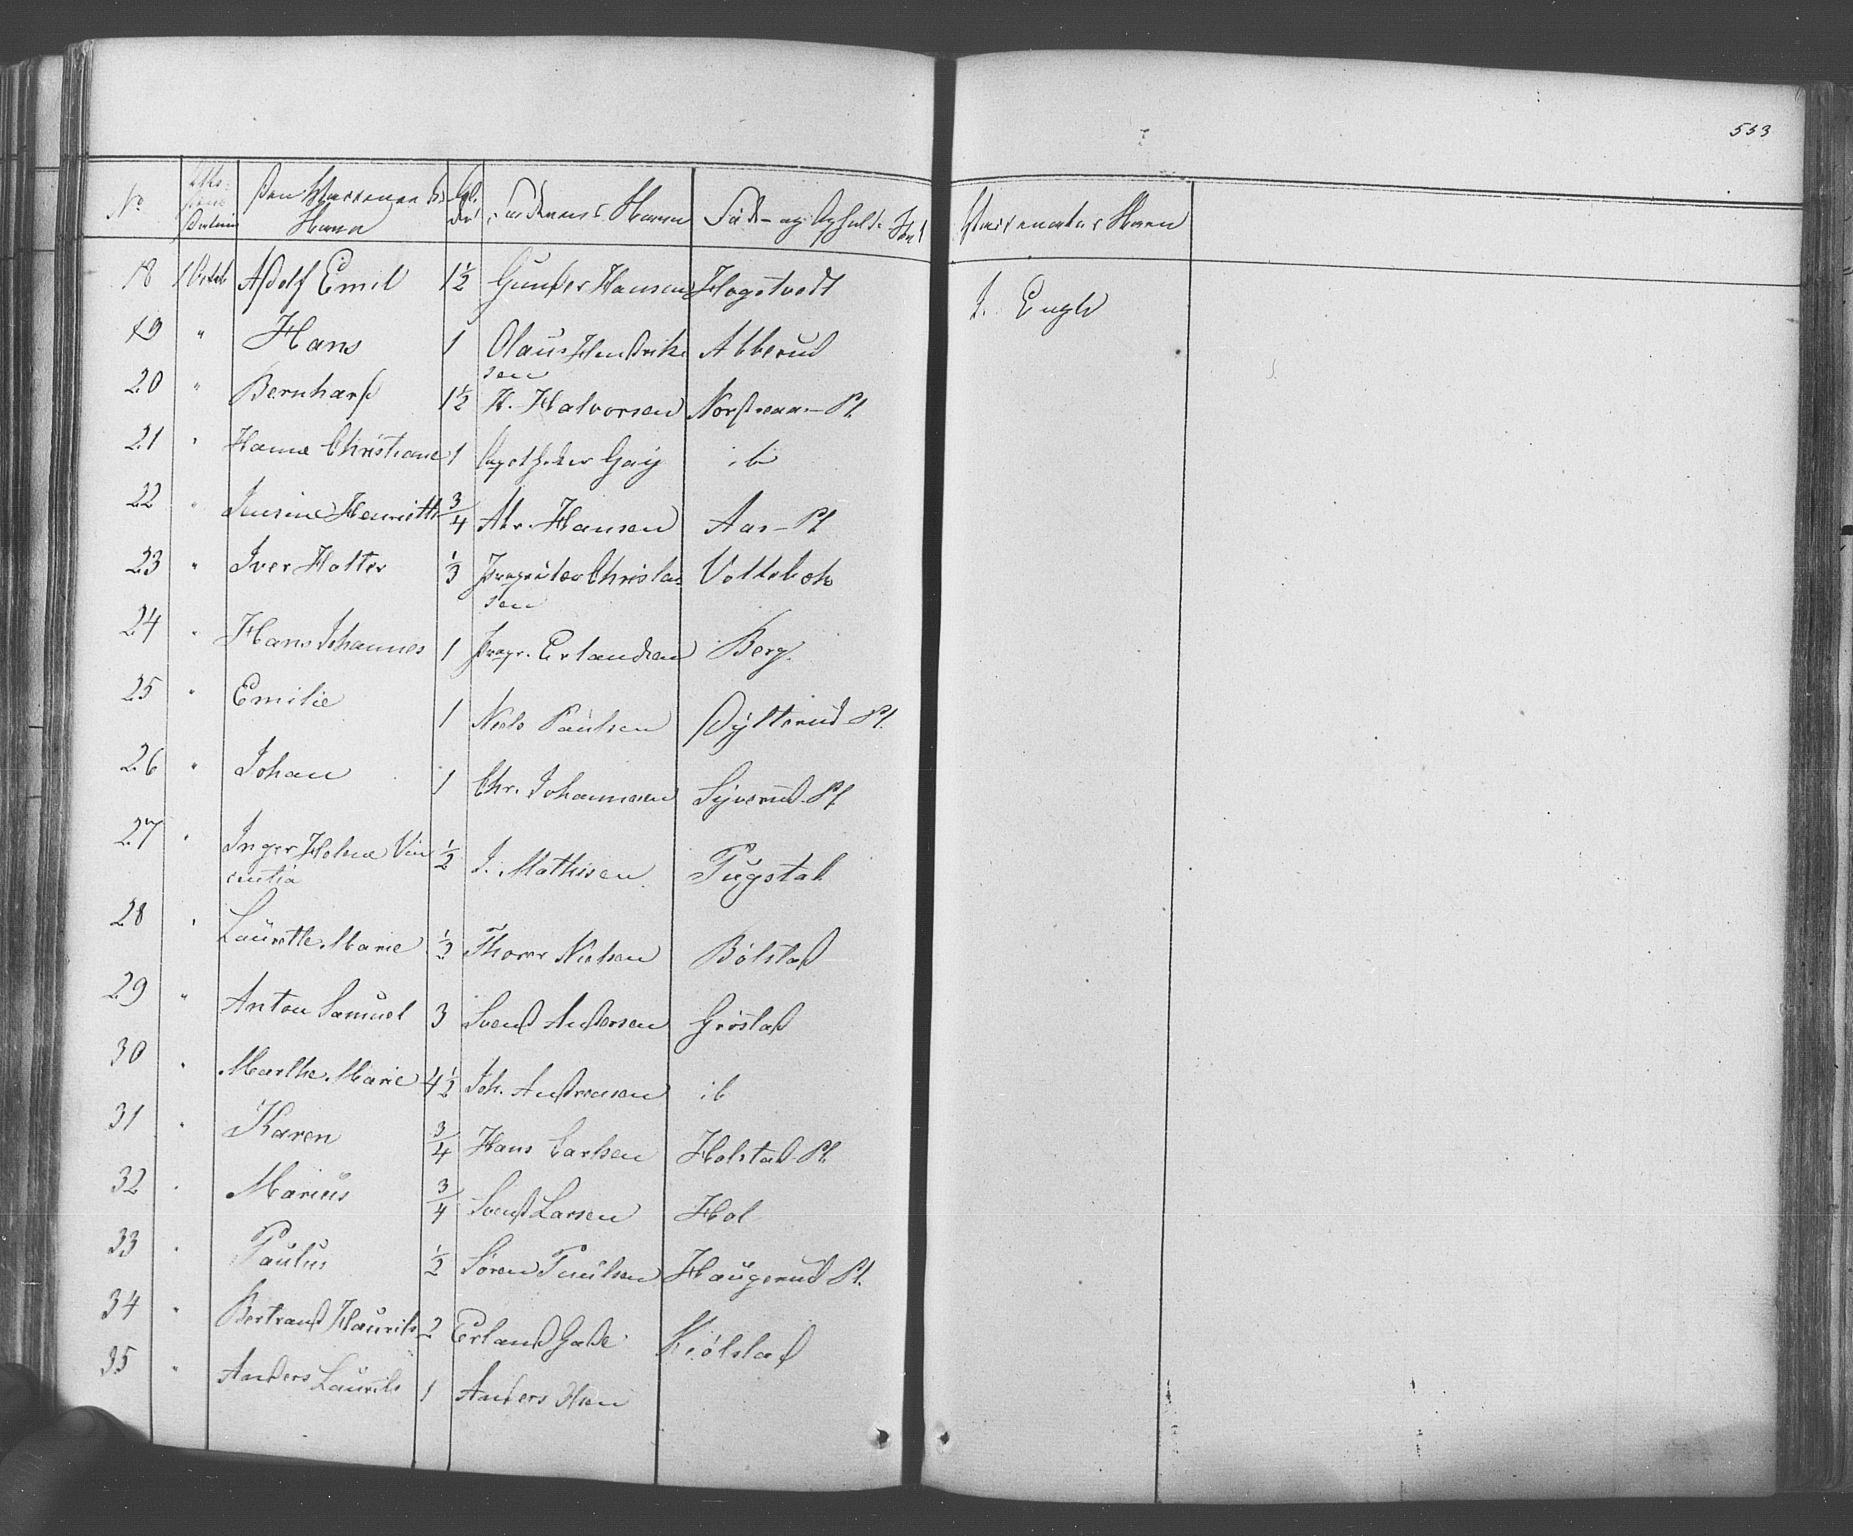 553
No
Den Vaccineredes Navn
Alder
Faderens Navn
Føde- og Opholds Sted
Vaccinators Navn
18 1 Octob Adolf Emil 1 1/2 Gunder Hansen Hogstvedt J. Engh
19 " Hans 1 Olaus Hendrik
sen Abberud
20 " Bernhard 1 1/2 H. Halvorsen Pl.
21 " Hanna Christiane 1 Apotheker ib
22 " Henriette 3/4 Hansen Aas Pl
23 " Iver Holter 1/3 Proprietær Christen
sen
24 " Hans Johannes 1 Propr. Erlandsen Berg.
25 " Emilie 1 Niels Paulsen Dÿlterud Pl.
26 " Johan 1 Chr. Johannesen Syverud Pl
27 " Inger Helene Vin
centia 1/2 J. Mathisen Tugstad
28 " Laurette Marie 1/2 Thorer Nielsen Bölstad
29 " Anton Samuel 3 Svend Andersen Gröstad
30 " Marthe Marie 4 1/2 Joh. Andreasen ib
31 " Karen 3/4 Hans Carlsen Holstad Pl.
32 " Marius 3/4 Svend Larsen Hol
33 " Paulus 1/2 Sören Paulsen Haugerud Pl.
34 " Bertrand Haurits 2 Erland Gade Kiölstad
35 " Anders Laurits 1 Anders